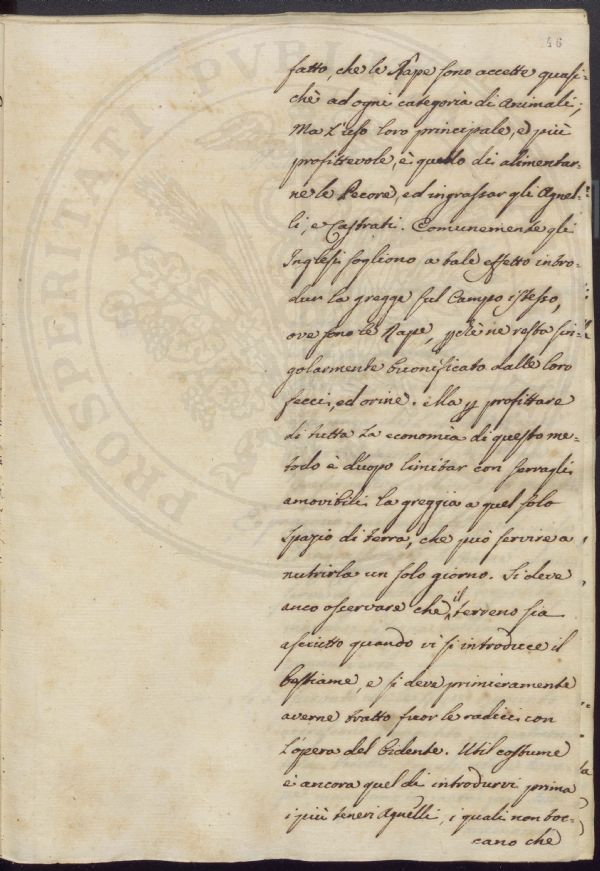 46
fatto, che le Rape sono accette quasi-
chè ad ogni categoria di Animali;
Ma l'uso loro principale, e più
profittevole, è quello di alimentar-
ne le Pecore, ed ingrassar gli Agnel-
li, e Castrati. Comunemente gli
Inglesi sogliono a tale effetto intro-
dur la gregge sul Campo istesso,
ove sono le Rape, che ne resta sin-
golarmente buonificato dalle loro
fecci, ed orine. Ma p profittare
di tutta la economia di questo me-
todo è d'uopo limitar con serragli
amovibili la greggia a quel solo
spazio di terra, che può servire a
nutrirla un solo giorno. Si deve
anco osservare che il terreno sia
asciutto quando vi si introduce il
bestiame, e si deve primieramente
averne tratto fuor le radici con
l'opera del bidente. Util costume
è ancora quel di introdurvi prima
i più teneri Agnelli, i quali non toc-
cano che
PROSPERITATI PUBLI